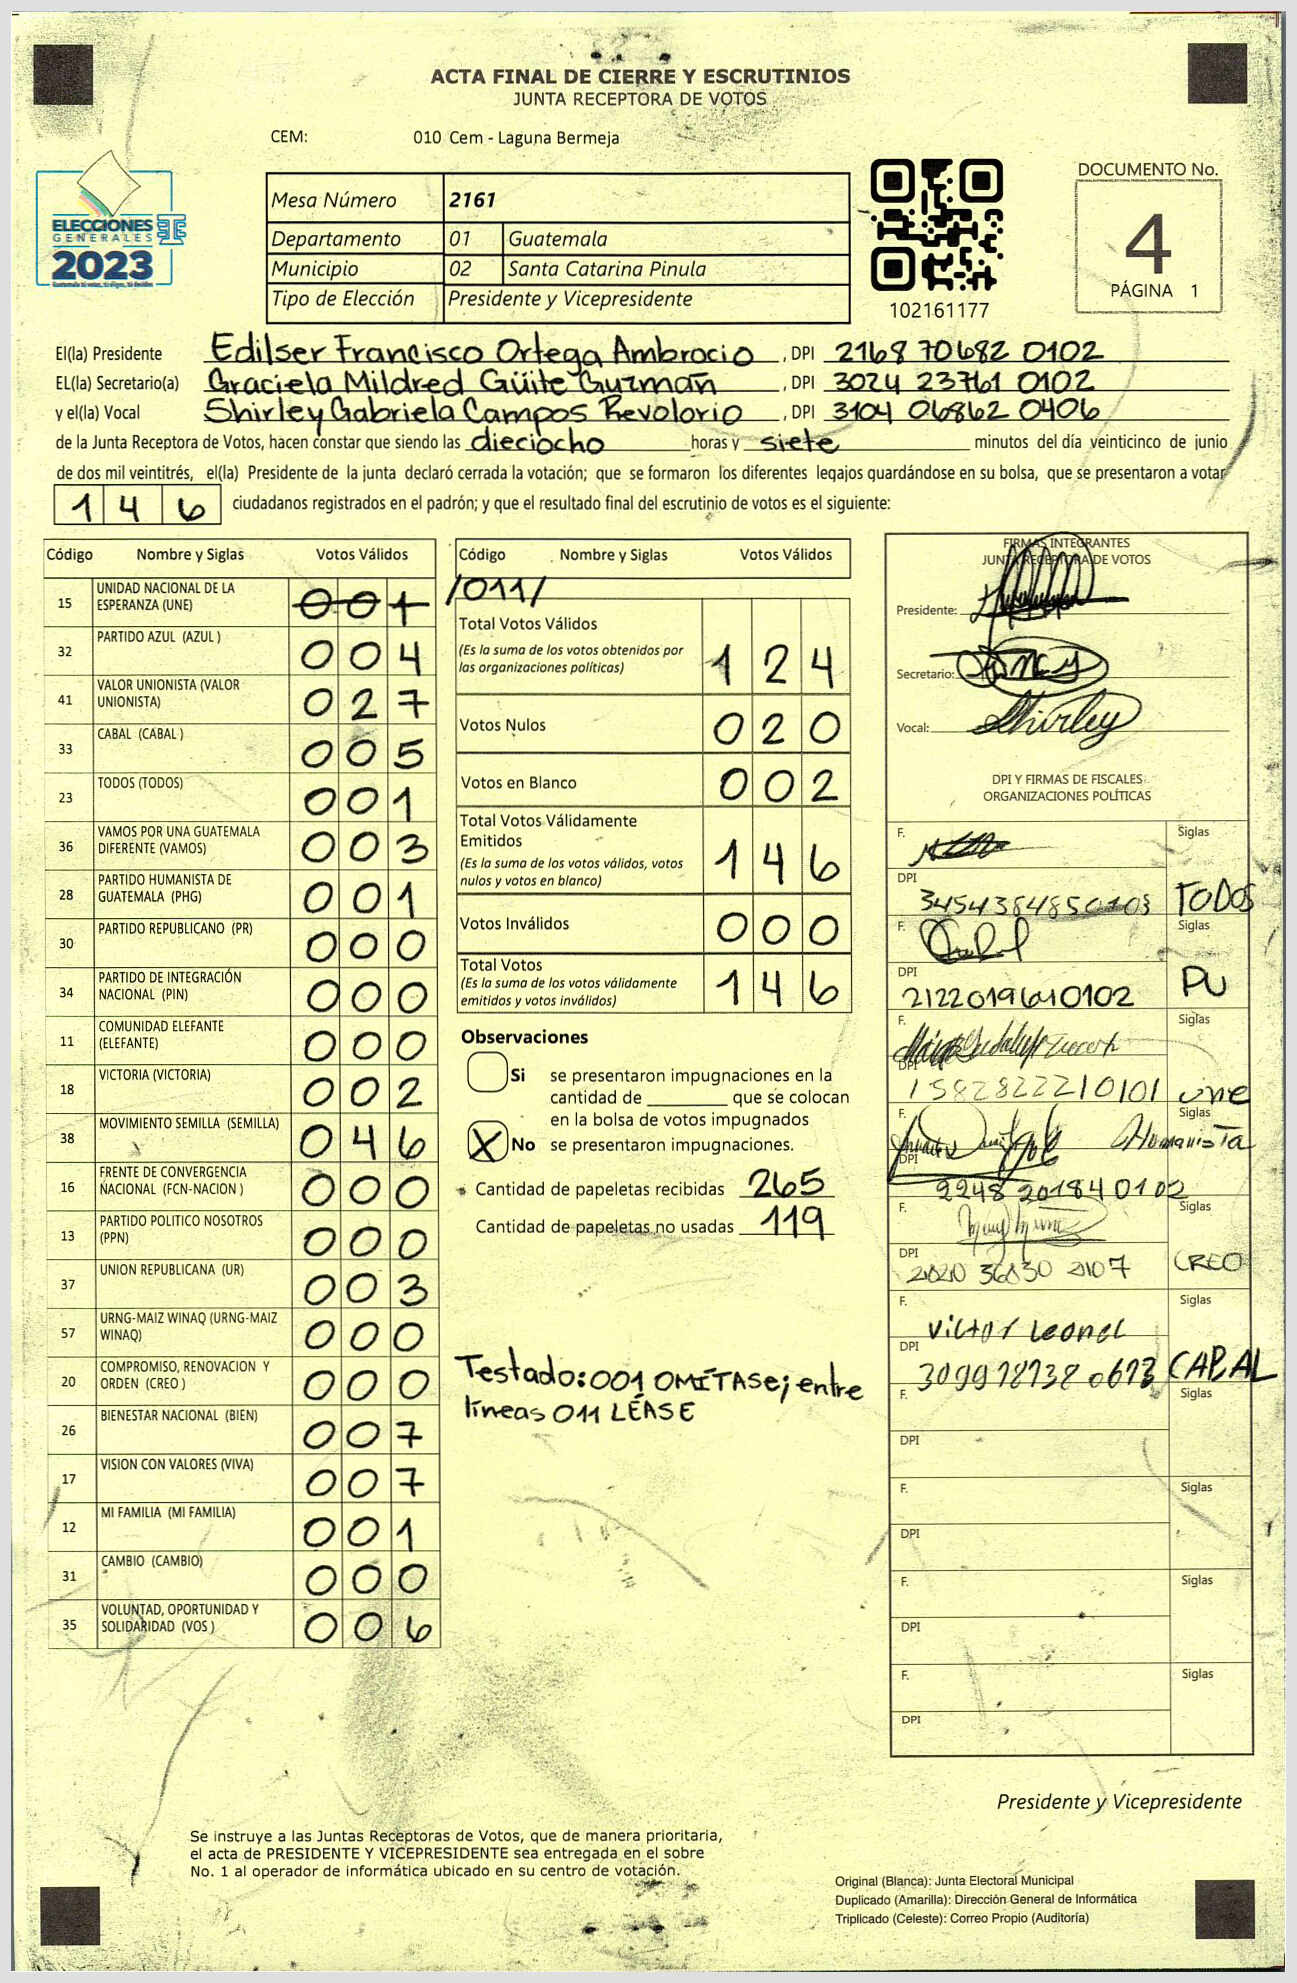 ACTA FINAL DE CIERRE Y ESCRUTINIOS
JUNTA RECEPTORA DE VOTOS
CEM: 010 Cem - Laguna Bermeja
ELECCIONES
GENERALES
2023
Mesa Número 2161
Departamento 01 Guatemala
Municipio 02 Santa Catarina Pinula
Tipo de Elección Presidente y Vicepresidente
102161177
DOCUMENTO No.
4
PÁGINA 1
El(la) Presidente Edilser Francisco Ortega Ambrocio , DPI 2168 70682 0102
EL(la) Secretario(a) Graciela Mildred Güite Guzmán , DPI 3024 23761 0102
y el(la) Vocal Shirley Gabriela Campos Revolorio , DPI 3104 06862 0406
de la Junta Receptora de Votos, hacen constar que siendo las dieciocho horas y siete minutos del día veinticinco de junio
de dos mil veintitrés, el(la) Presidente de la junta declaró cerrada la votación; que se formaron los diferentes legajos guardándose en su bolsa, que se presentaron a votar
146 ciudadanos registrados en el padrón; y que el resultado final del escrutinio de votos es el siguiente:
Código Nombre y Siglas Votos Válidos
15 UNIDAD NACIONAL DE LA ESPERANZA (UNE) 001 /011/
32 PARTIDO AZUL (AZUL ) 004
41 VALOR UNIONISTA (VALOR UNIONISTA) 027
33 CABAL (CABAL ) 005
23 TODOS (TODOS) 001
36 VAMOS POR UNA GUATEMALA DIFERENTE (VAMOS) 003
28 PARTIDO HUMANISTA DE GUATEMALA (PHG) 001
30 PARTIDO REPUBLICANO (PR) 000
34 PARTIDO DE INTEGRACIÓN NACIONAL (PIN) 000
11 COMUNIDAD ELEFANTE (ELEFANTE) 000
18 VICTORIA (VICTORIA) 002
38 MOVIMIENTO SEMILLA (SEMILLA) 046
16 FRENTE DE CONVERGENCIA NACIONAL (FCN-NACION ) 000
13 PARTIDO POLITICO NOSOTROS (PPN) 000
37 UNION REPUBLICANA (UR) 003
57 URNG-MAIZ WINAQ (URNG-MAIZ WINAQ) 000
20 COMPROMISO, RENOVACION Y ORDEN (CREO ) 000
26 BIENESTAR NACIONAL (BIEN) 007
17 VISION CON VALORES (VIVA) 007
12 MI FAMILIA (MI FAMILIA) 001
31 CAMBIO (CAMBIO) 000
35 VOLUNTAD, OPORTUNIDAD Y SOLIDARIDAD (VOS ) 006
Código Nombre y Siglas Votos Válidos
Total Votos Válidos 124
(Es la suma de los votos obtenidos por
las organizaciones políticas)
Votos Nulos 020
Votos en Blanco 002
Total Votos Válidamente
Emitidos 146
(Es la suma de los votos válidos, votos
nulos y votos en blanco)
Votos Inválidos 000
Total Votos 146
(Es la suma de los votos válidamente
emitidos y votos inválidos)
Observaciones
Si se presentaron impugnaciones en la
cantidad de ________ que se colocan
en la bolsa de votos impugnados
X No se presentaron impugnaciones.
Cantidad de papeletas recibidas 265
Cantidad de papeletas no usadas 119
Testado: 001 OMÍTASE; entre
líneas 011 LÉASE
FIRMAS INTEGRANTES
JUNTA RECEPTORA DE VOTOS
Presidente:
Secretario:
Vocal: Shirley
DPI Y FIRMAS DE FISCALES
ORGANIZACIONES POLÍTICAS
F. Siglas
DPI 3454384850103 TODOS
F. Siglas
DPI 2122019640102 PU
F. Siglas
DPI 1582822210101 une
F. Siglas
Humanista
DPI 2248 20184 0102
F. Siglas
DPI CREO
F. Victor Leonel Siglas
DPI CABAL
F. Siglas
DPI
F. Siglas
DPI
F. Siglas
DPI
F. Siglas
DPI
Presidente y Vicepresidente
Se instruye a las Juntas Receptoras de Votos, que de manera prioritaria,
el acta de PRESIDENTE Y VICEPRESIDENTE sea entregada en el sobre
No. 1 al operador de informática ubicado en su centro de votación.
Original (Blanca): Junta Electoral Municipal
Duplicado (Amarilla): Dirección General de Informática
Triplicado (Celeste): Correo Propio (Auditoría)